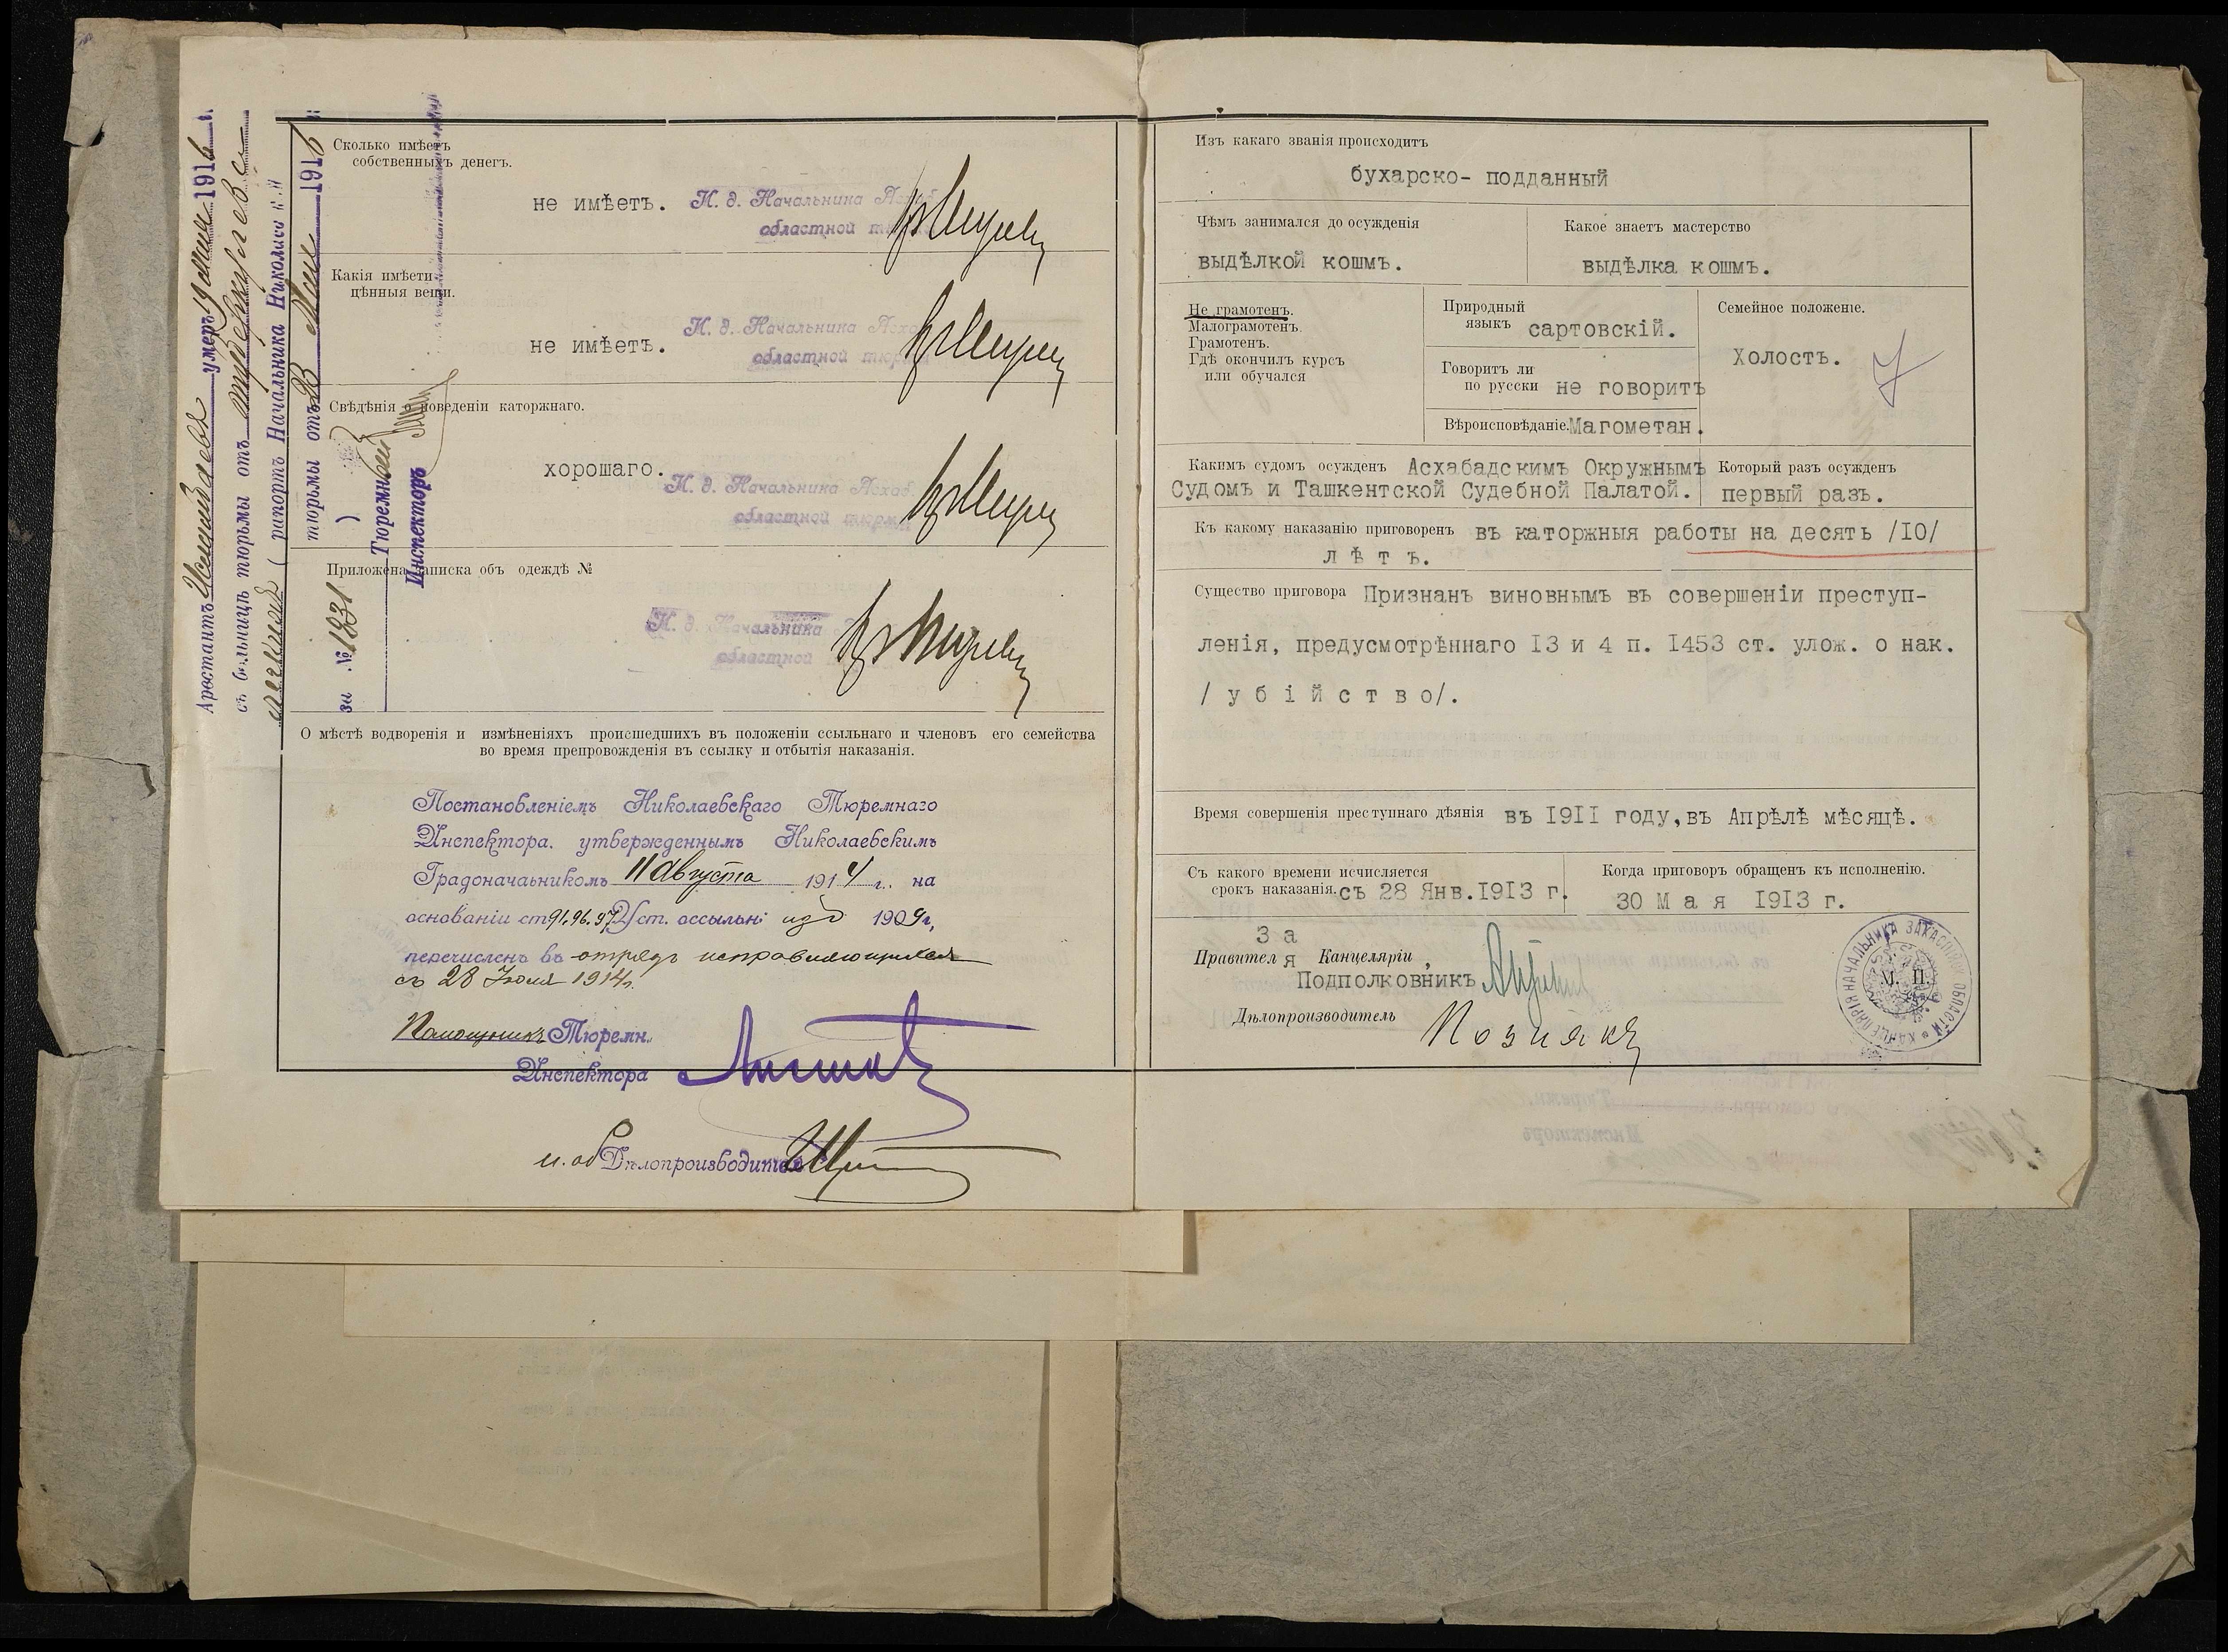 Арестантъ Исмаилаевъ умеръ 19 Мая 1916 г.
съ больницѣ тюрьмы отъ туберкулеза
легкихъ ( рапортъ Начальника Николаев
тюрьмы отъ Мая 1916
за № 1831 )
Тюремный
Инспекторъ
Сколько имѣетъ
собственныхъ денегъ.
не имѣетъ.
И. д. Начальника Асхаб
областной
Какія имѣетъ
цѣнныя вещи.
не имѣетъ.
И. д. Начальника Асха
областной тюрм
Свѣдѣнія о поведеніи каторжнаго.
хорошаго.
И. д. Начальника Асхаб
областной тюрм
Приложена записка объ одеждѣ №
И. д. Начальника
областной
О мѣстѣ водворенія и измѣненіяхъ происшедшихъ въ положеніи ссыльнаго и членовъ его семейства
во время препровожденія въ ссылку и отбытія наказанія.
Постановленіемъ Николаевскаго Тюремнаго
Инспектора, утвержденнымъ Николаевскимъ
Градоначаьникомъ 11 Августа 1914 г. на
основаніи ст 91, 96, 97 Уст. оссыльн: изд 1909 г,
перечисленъ въ отрядъ исправляющихся
съ 28 Іюля 1914 г.
Помощникъ Тюремн.
Инспектора
и. об Дѣлопроизводителя
Изъ какаго званія происходитъ
бухарско- подданный
Чѣмъ занимался до осужденія
выдѣлкой кошмъ.
Какое знаетъ мастерство
выдѣлка кошмъ.
Не грамотенъ.
Малограмотенъ.
Грамотенъ.
Гдѣ окончилъ курсъ
или обучался
Природный
языкъ сартовскій.
Говоритъ ли
по русски не говоритъ
Вѣроисповѣданіе. Магометан.
Семейное положеніе.
Холостъ.
Какимъ судомъ осужденъ Асхабадскимъ Окружнымъ
Судомъ и Ташкентской Судебной Палатой.
Который разъ осужденъ
первый разъ.
Къ какому наказанію приговоренъ въ каторжныя работы на десять /IO/
лѣтъ.
Существо приговора Признанъ виновнымъ въ совершеніи преступ-
ленія, предусмотрѣннаго I3 и 4 п. I453 ст. улож. о нак.
/ у б і й с т в о/.
Время совершенія преступнаго дѣянія въ I9II году, въ Апрѣлѣ мѣсяцѣ.
Съ какого времени исчисляется
срокъ наказанія. съ 28 Янв. I9I3 г.
Когда приговоръ обращенъ къ исполненію.
30 М а я I9I3 г.
За
Правителя Канцеляріи,
Подполковникъ
Дѣлопроизводитель Познякъ
КАНЦЕЛЯРІЯ НАЧАЛЬНИКА ЗАКАСПІЙСКОЙ ОБЛАСТИ
М. П.